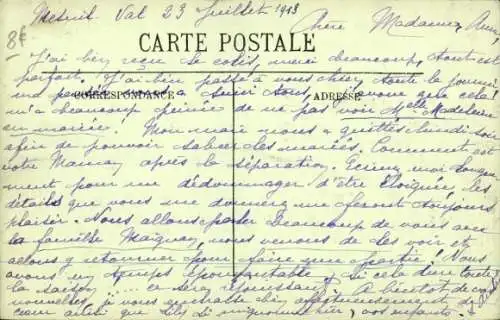 Mesnil Val 23 Juillet 1913
Chère Madame
8f
CARTE POSTALE
J'ai bien reçu le colis, merci beaucoup, tout est
parfait. J'ai bien passé à vous hier toute la journée
CORRESPONDANCE
ADRESSE
ma pensée a suivi tous, avoue que cela
m'a beaucoup peinée de ne pas voir Mlle Madeleine
en mariée. Mon mari nous a quittés lundi soir
afin de pouvoir les mariés. Comment est
votre Maman après la séparation. Ecrivez moi longue
ment pour me dédommager d'être éloignée, les
détails que vous me donnerez me feront toujours
plaisir. Nous allons parler beaucoup de vous avec
la famille nous venons de les voir et
allons y retourner pour faire une partie! Nous
avons un temps épouvantable, si cela dure toute
la saison ce sera A bientôt de vos
nouvelles, je vous embrasse bien affectueusement
ainsi que chéri, vos enfants.